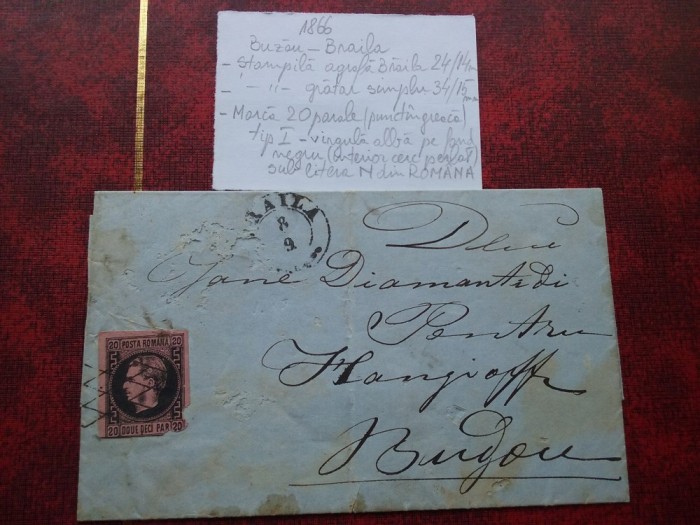 1866
Buzău - Braila
- Stampilă agrafă Brăila 24/14
- " - " - gratar simplu 34/15 mm
- Marcă 20 parale (punct îngroșat)
tip I - virgulă albă pe fond
negru (interior cerc perlat)
sub litera N din ROMÂNA
RAILA
8
9
Dlui
Jane Diamantidi
Pentru
Hangioff
Budgou
20 POSTA ROMANA 20
20 DOUE DECI PAR 20